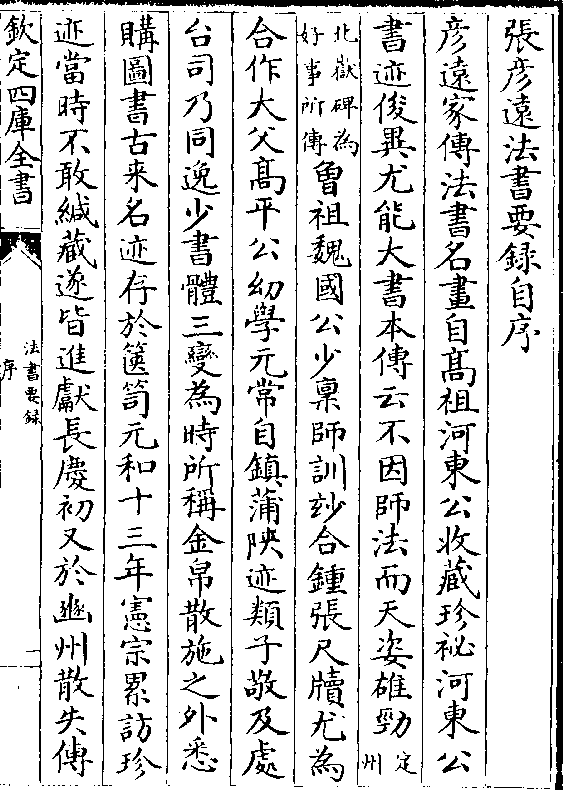 張彦遠法書要録自序
彦遠家傳法書名畫自髙祖河東公收藏珍祕河東公
書迹俊異尤能大書本傳云不因師法而天姿雄勁定州
北嶽碑為好事所傳曾祖魏國公少禀師訓玅合鍾張尺牘尤為
合作大父髙平公幼學元常自鎮蒲陜迹類子敬及處
台司乃同逸少書體三變為時所稱金帛散施之外悉
購圖書古来名迹存於篋笥元和十三年憲宗累訪珍
迹當時不敢緘藏遂皆進獻長慶初又於幽州散失傳
欽定四庫全書
法書要録
序
一